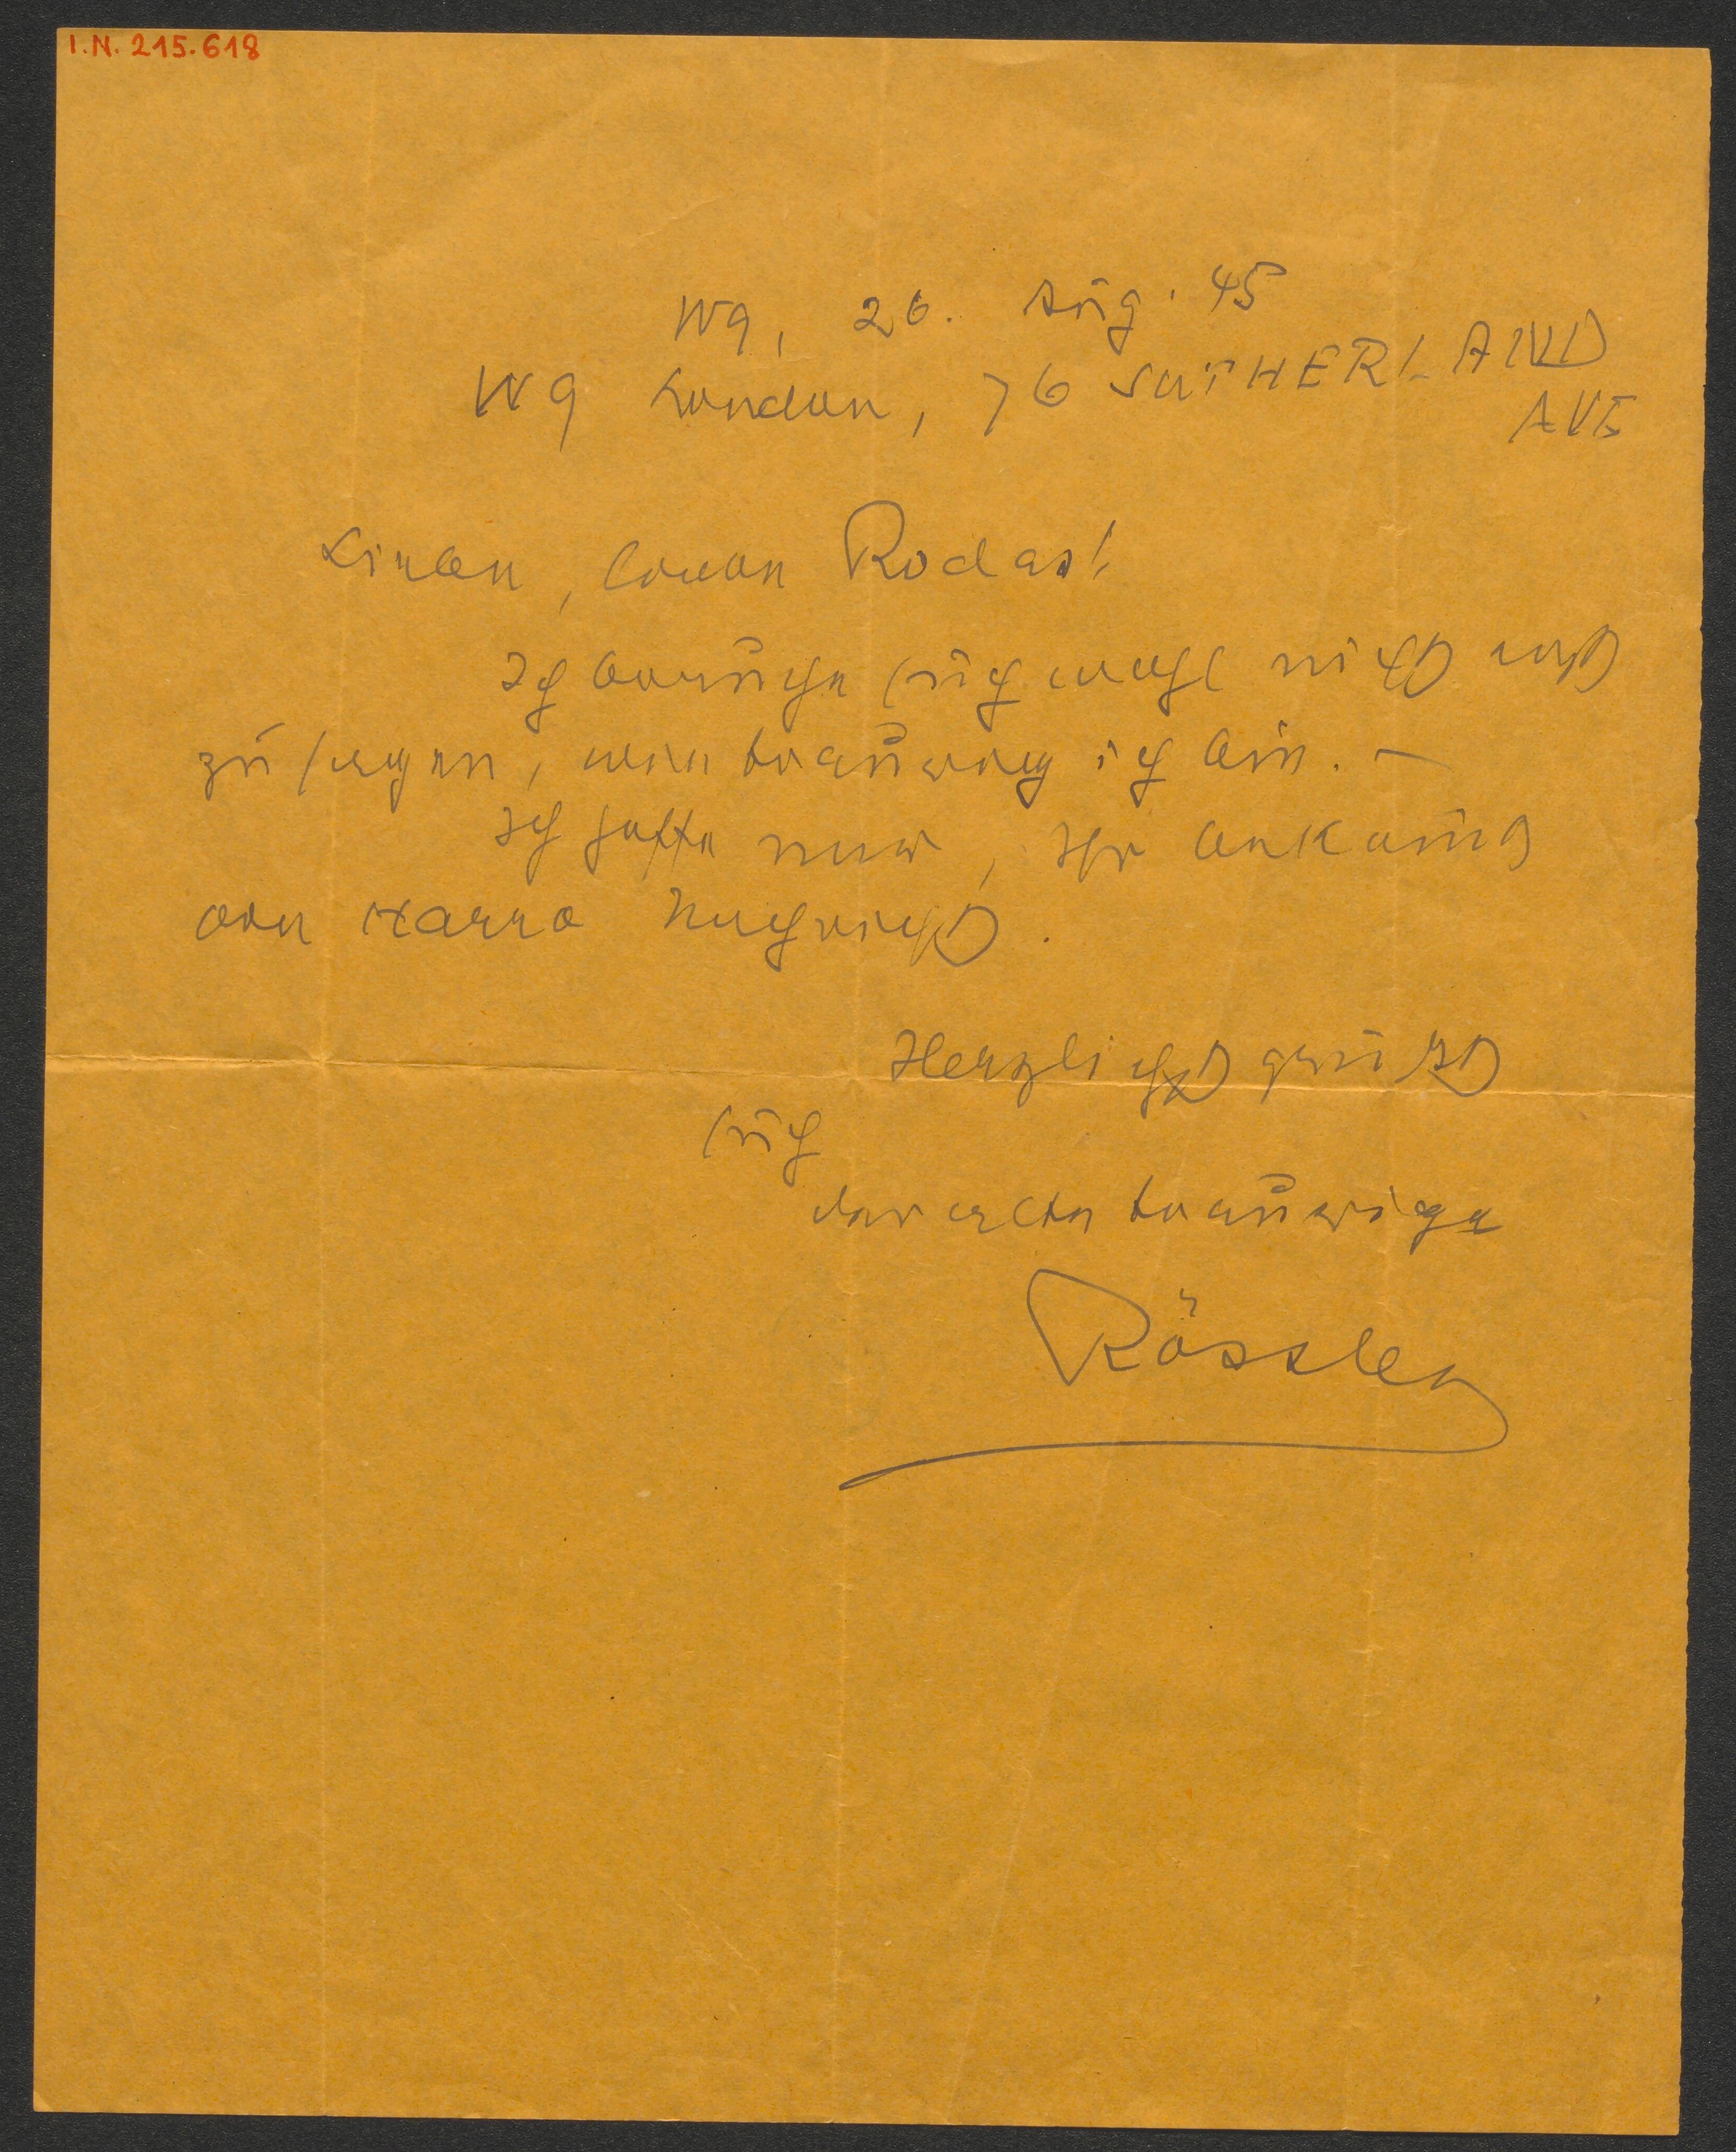 I.N. 215.618
W9, 26. Aug. 45
W9 London, 76 SUTHERLAND
AVE
Lieben, braven Rodas!
Ich brauche Euch wohl nicht erst
zu sagen, wie traurig ich bin. –
Ich hoffe nur, Ihr bekamt
von Nachricht.
Herzlichst grüßt
Euch
der alte traurige
Rössler